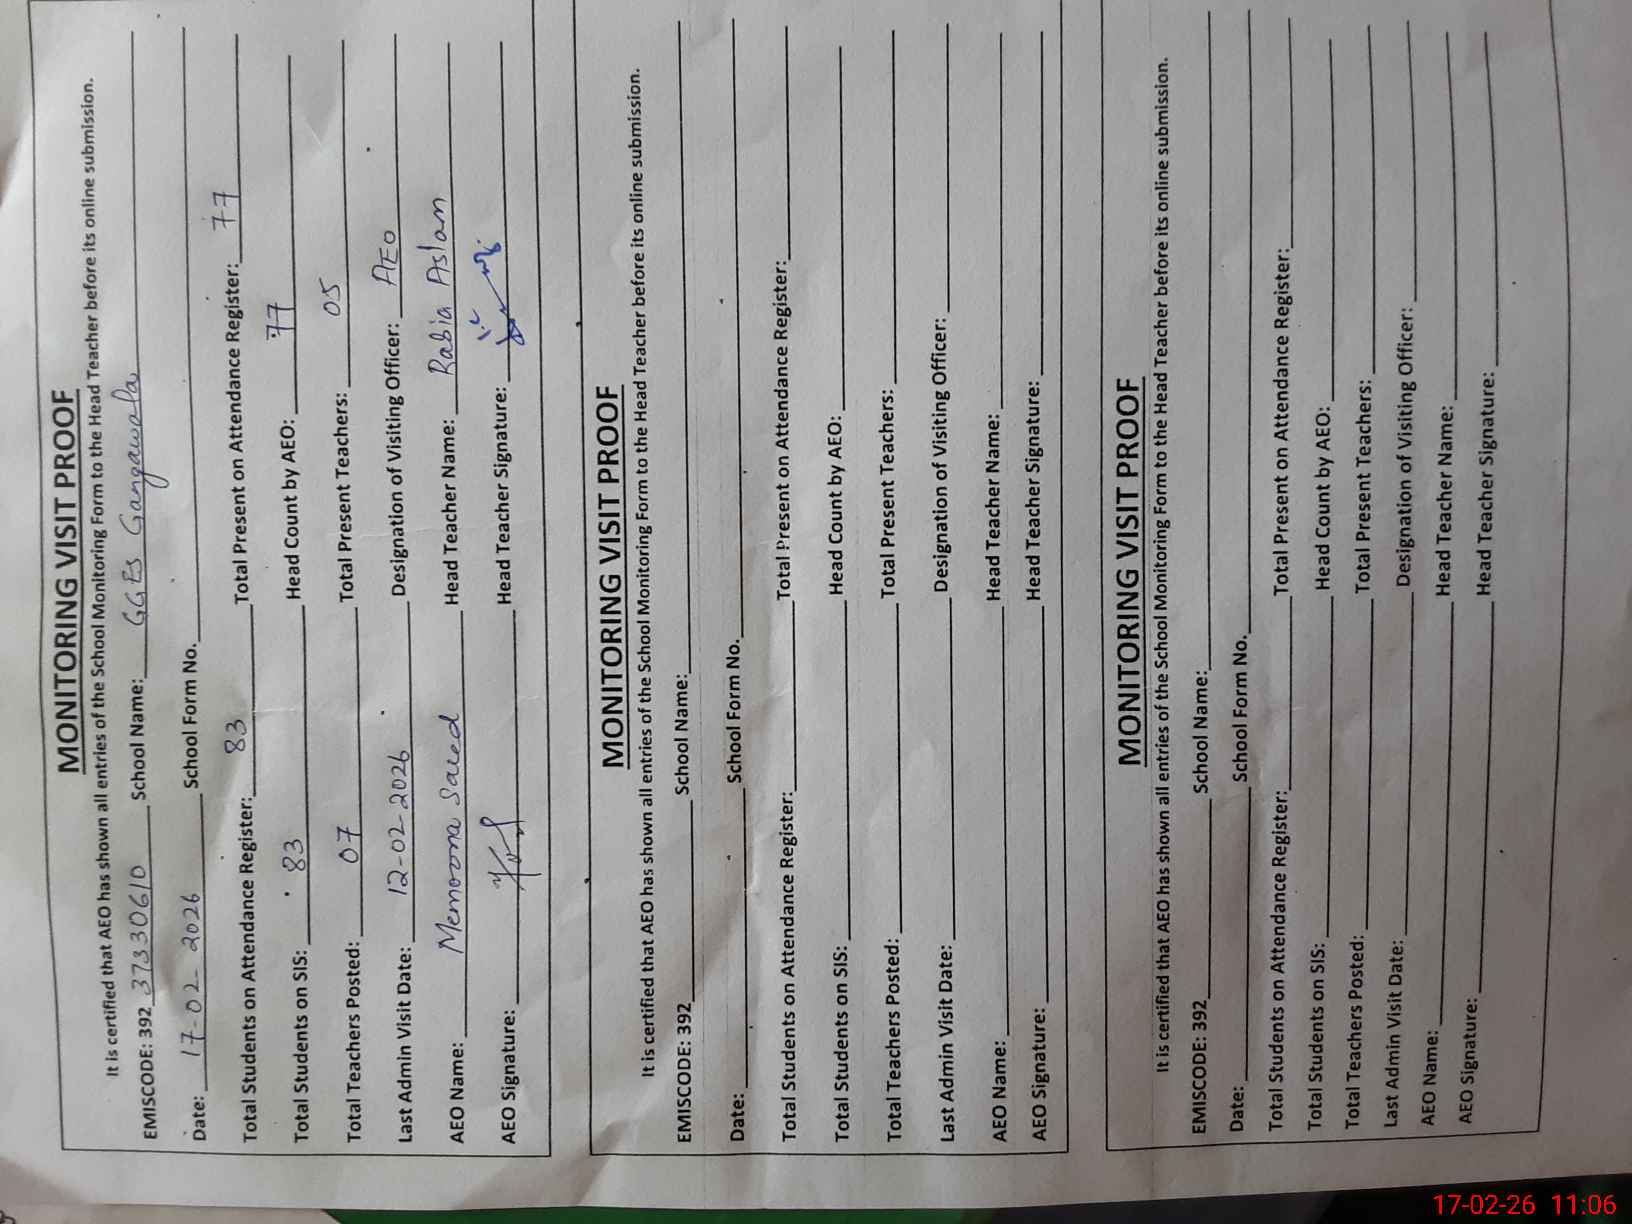 MONITORING VISIT PROOF
It is certified that AEO has shown all entries of the School Monitoring Form to the Head Teacher before its online submission.
EMISCODE: 392 37330610 School Name: GGES Gangawala
Date: 17-02-2026 School Form No.
Total Students on Attendance Register: 83 Total Present on Attendance Register: 77
Total Students on SIS: 83 Head Count by AEO: 77
Total Teachers Posted: 07 Total Present Teachers: 05
Last Admin Visit Date: 12-02-2026 Designation of Visiting Officer: AEO
AEO Name: Memoona Saeed Head Teacher Name: Rabia Aslam
AEO Signature: Head Teacher Signature:
MONITORING VISIT PROOF
It is certified that AEO has shown all entries of the School Monitoring Form to the Head Teacher before its online submission.
EMISCODE: 392 School Name:
Date: School Form No.
Total Students on Attendance Register: Total Present on Attendance Register:
Total Students on SIS: Head Count by AEO:
Total Teachers Posted: Total Present Teachers:
Last Admin Visit Date: Designation of Visiting Officer:
AEO Name: Head Teacher Name:
AEO Signature: Head Teacher Signature:
MONITORING VISIT PROOF
It is certified that AEO has shown all entries of the School Monitoring Form to the Head Teacher before its online submission.
EMISCODE: 392 School Name:
Date: School Form No.
Total Students on Attendance Register: Total Present on Attendance Register:
Total Students on SIS: Head Count by AEO:
Total Teachers Posted: Total Present Teachers:
Last Admin Visit Date: Designation of Visiting Officer:
AEO Name: Head Teacher Name:
AEO Signature: Head Teacher Signature:
17-02-26 11:06